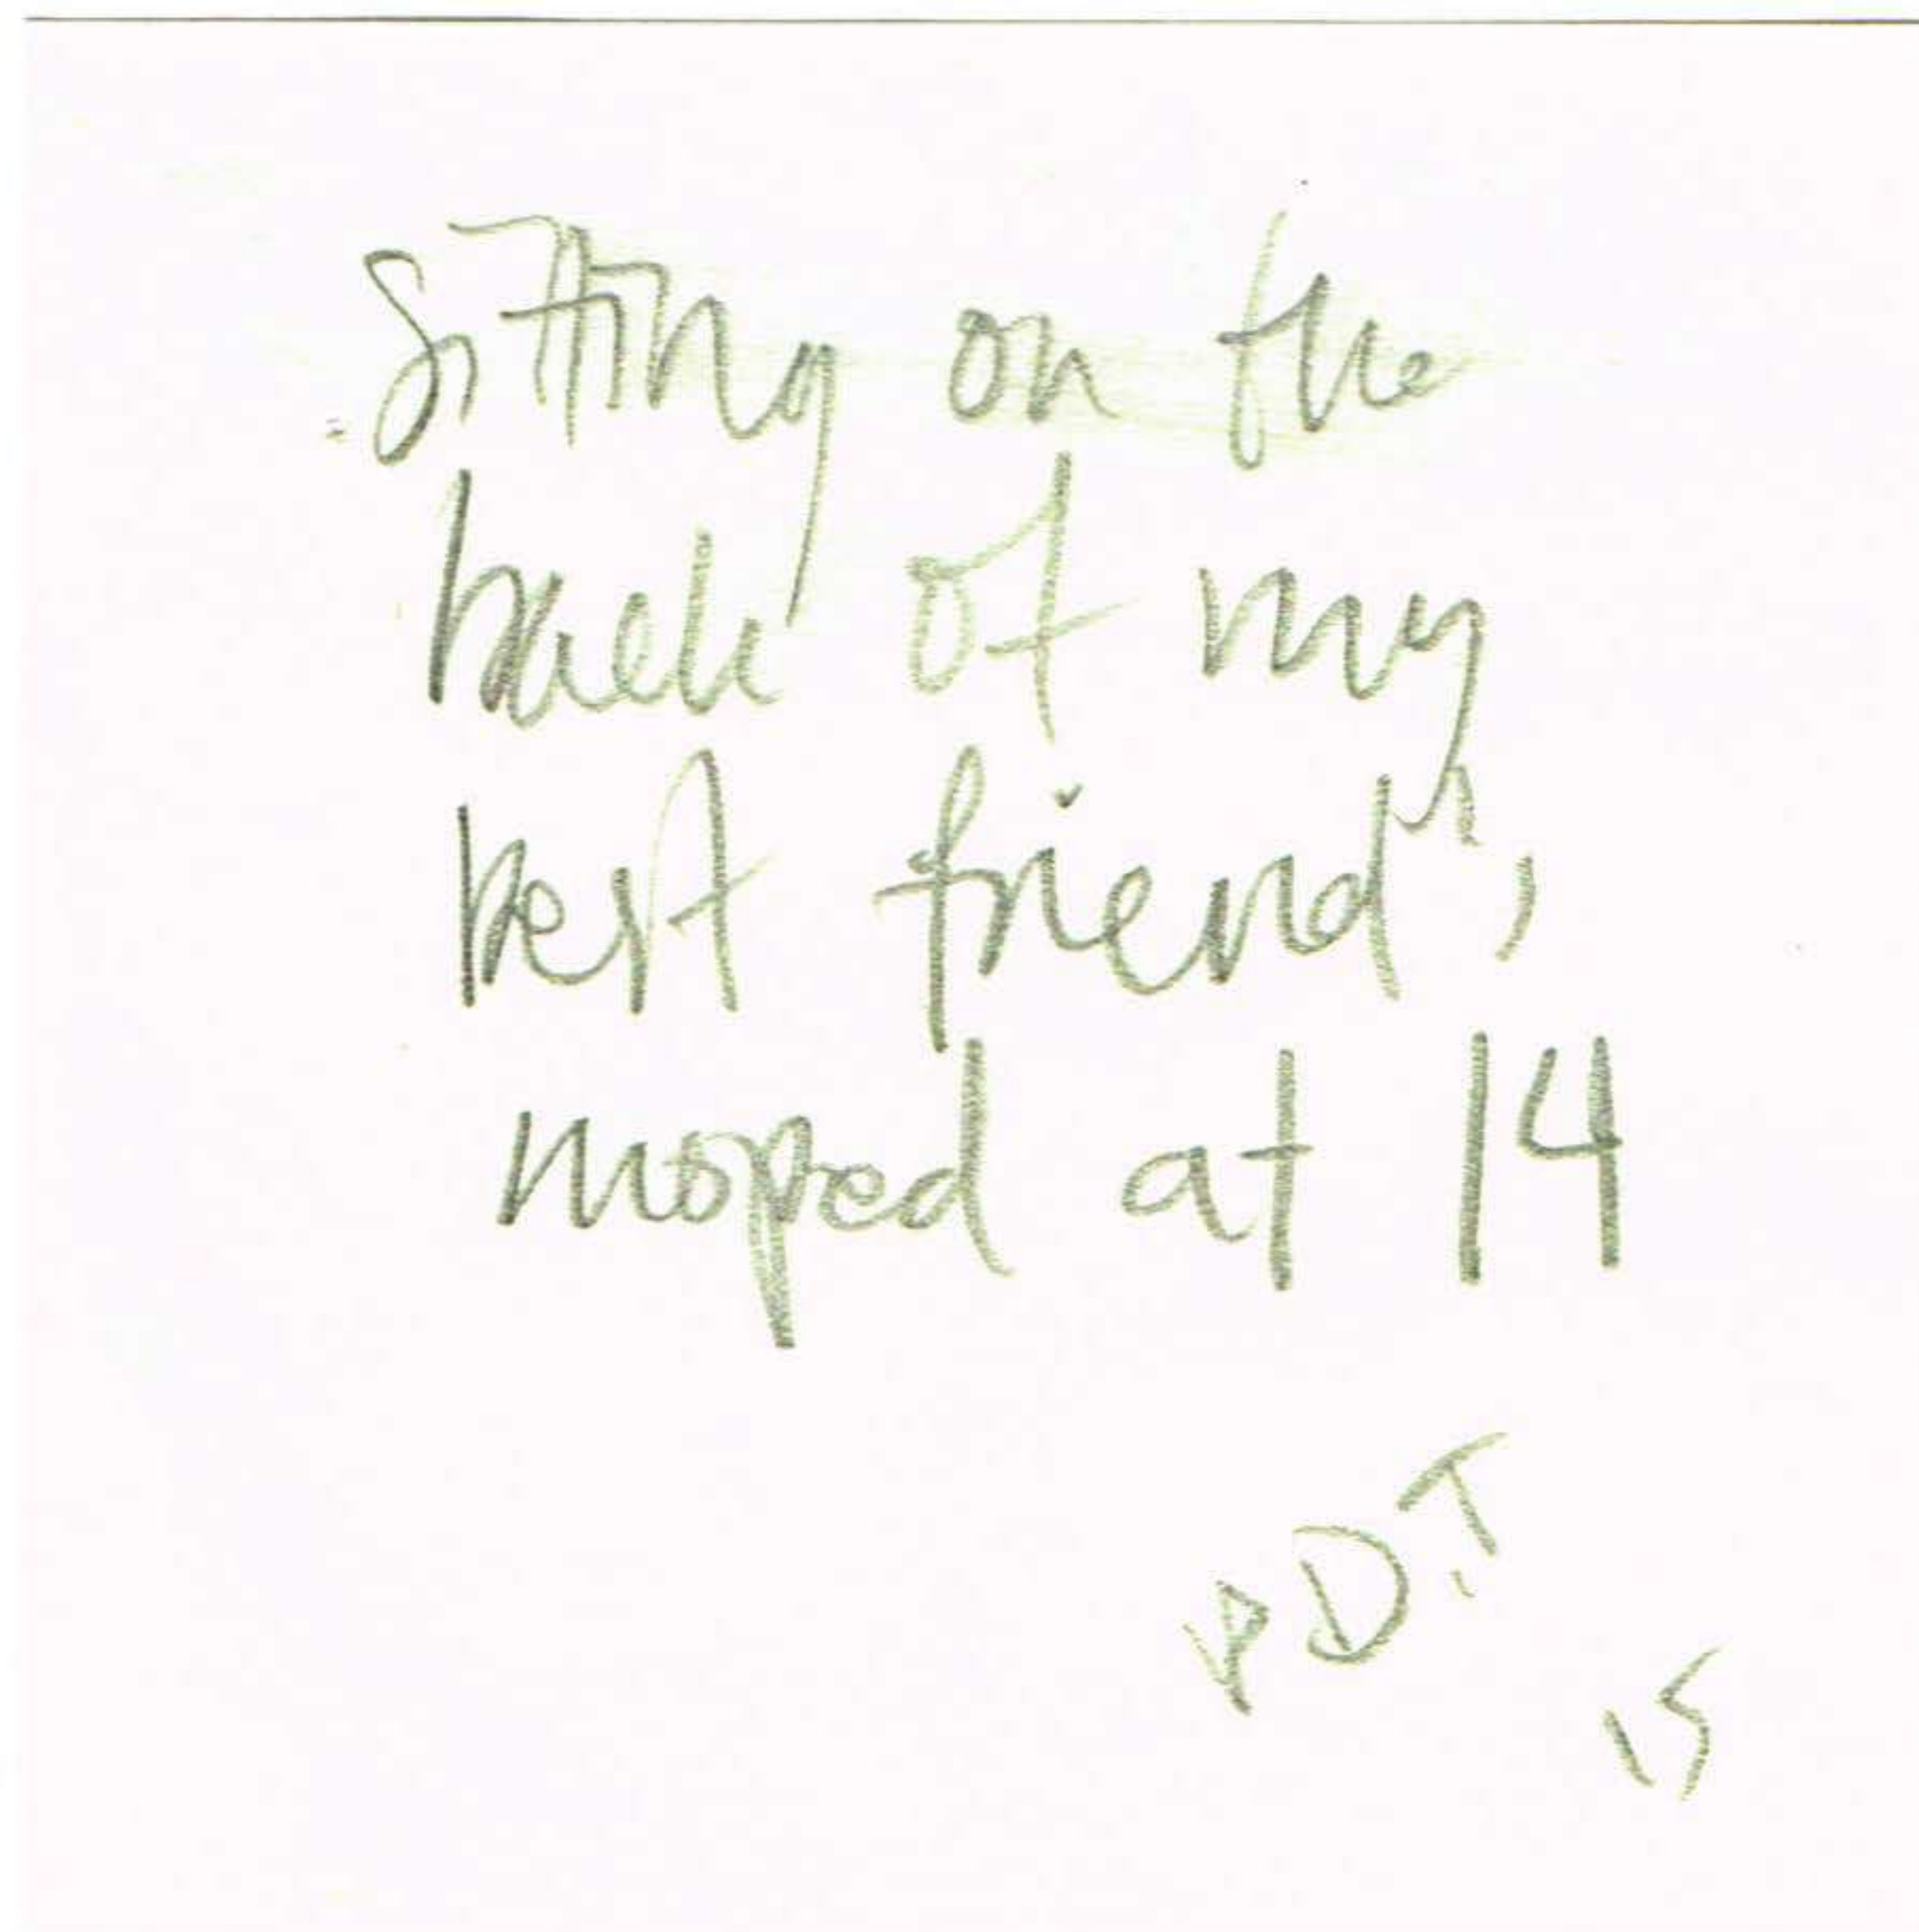 Sitting on the
back of my
best friend's
moped at 14
PDT
15